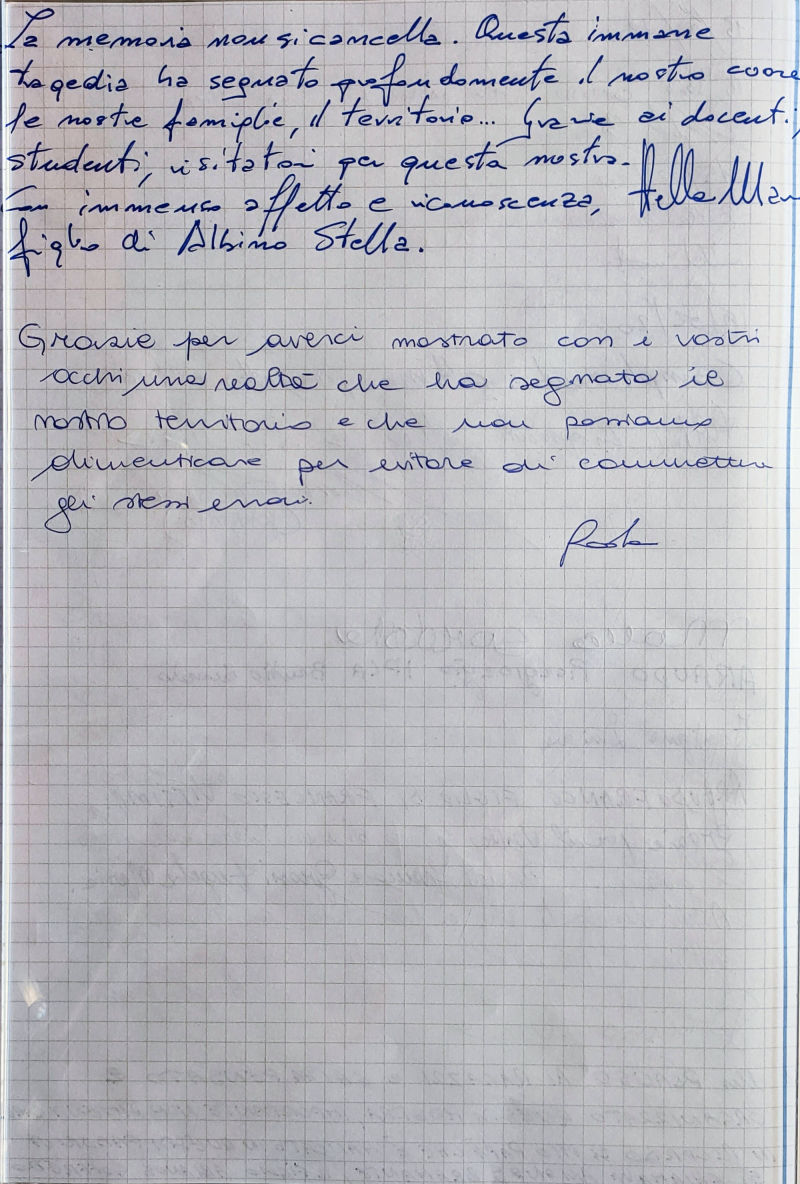 La memoria non si cancella. Questa immane
tragedia ha segnato profondamente il nostro cuore
le nostre famiglie, il territorio... Grazie ai docenti,
studenti, visitatori per questa mostra.
Con immenso affetto e riconoscenza, Stella
figlio di Albino Stella.
Grazie per averci mostrato con i vostri
occhi una realtà che ha segnato il
nostro territorio e che non possiamo
dimenticare per evitare di commettere
gli stessi errori.
Paola